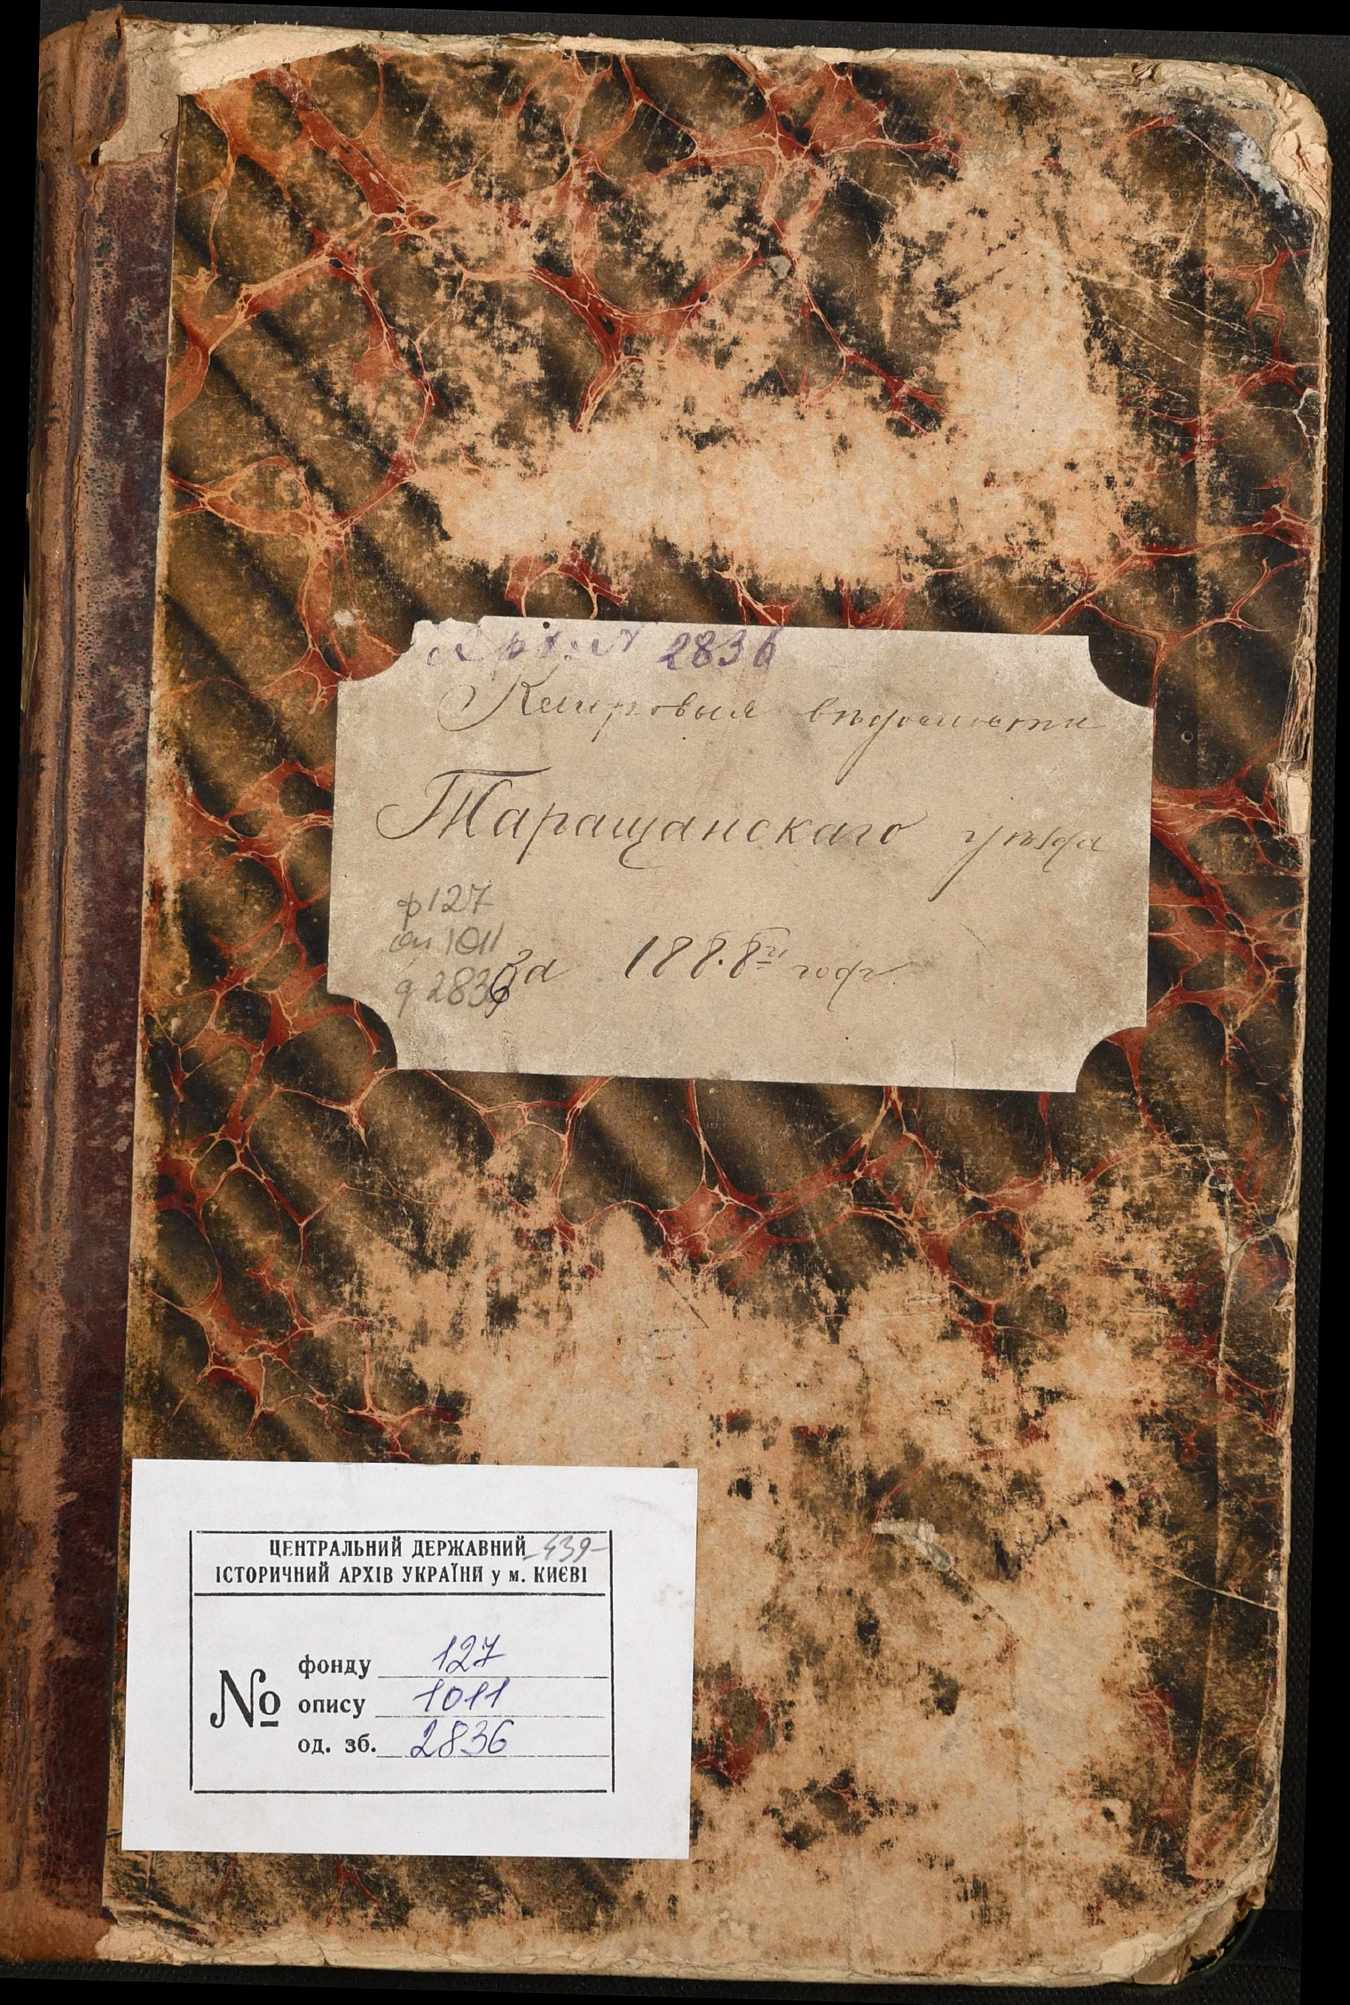 2836
Клировыя вѣдомости
Таращанскаго уѣзда
ф 127
оп 1011
д 2836
за 1888й годъ.
ЦЕНТРАЛЬНИЙ ДЕРЖАВНИЙ -439-
ІСТОРИЧНИЙ АРХІВ УКРАЇНИ у м. КИЄВІ
№
фонду 127
опису 1011
од. зб. 2836